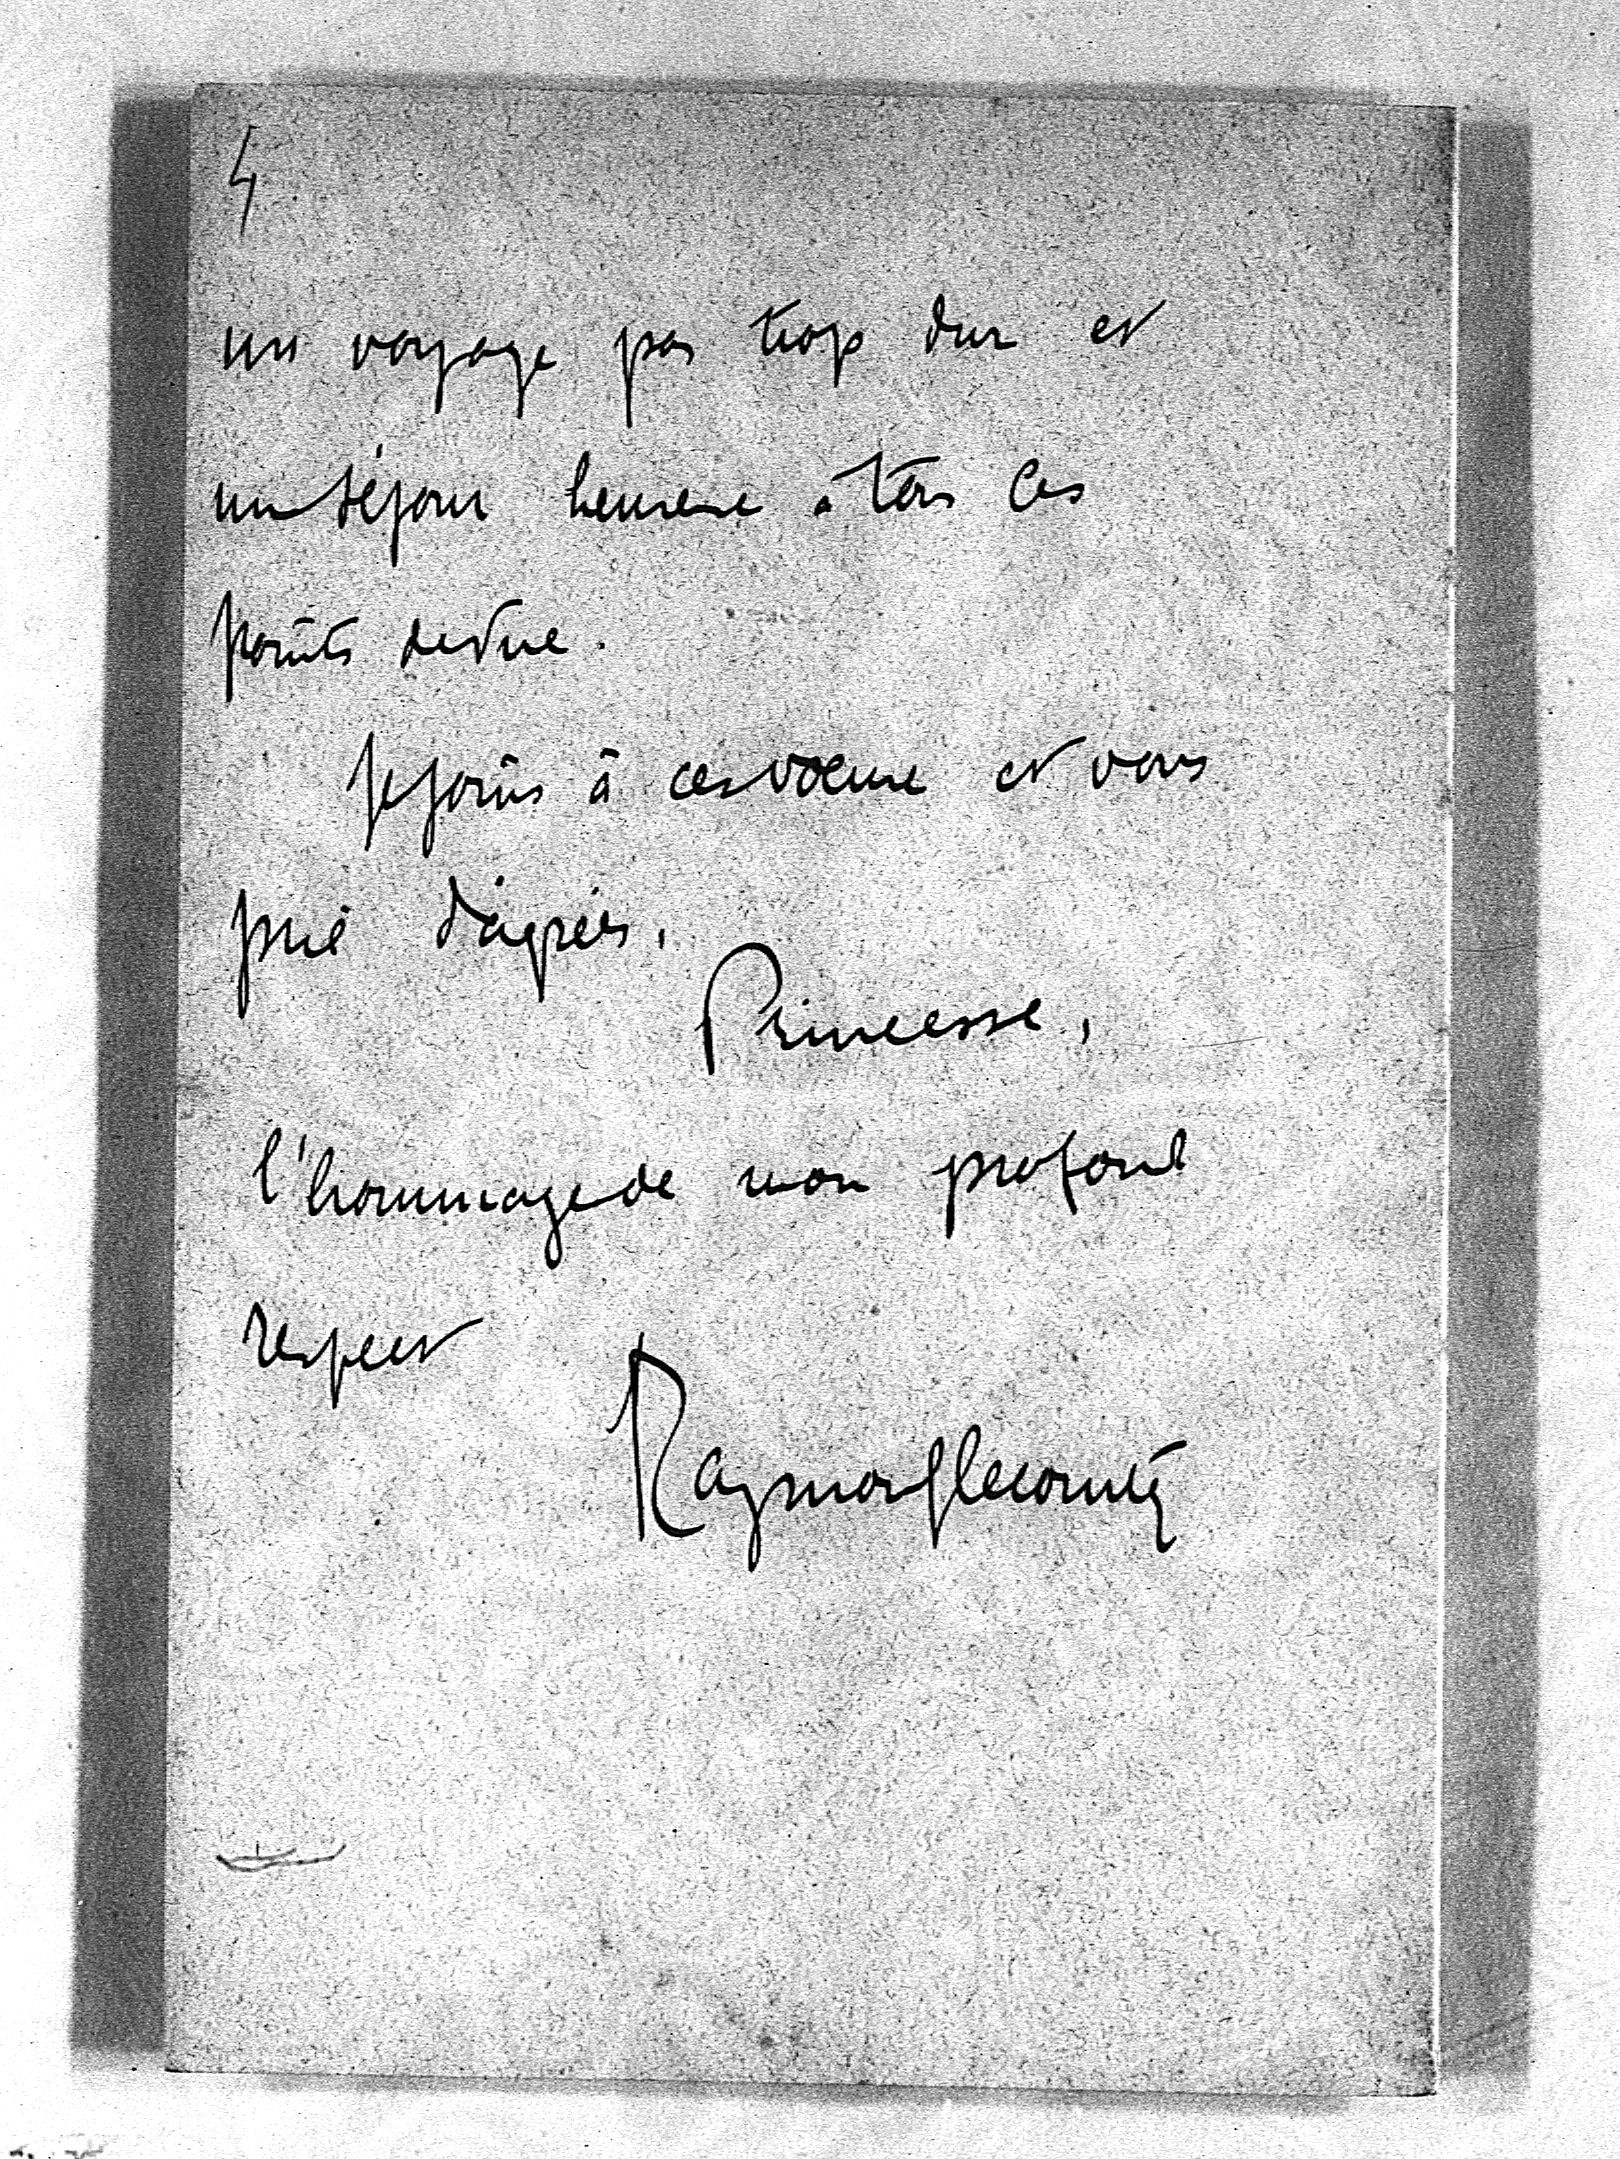 4
un voyage pas trop dur et
un séjour heureux à tous les
points de vue.
Je joins à ces vœux et vous
prie d'agréer,
Princesse,
l'hommage de mon profond
respect
Raymond Lecomte